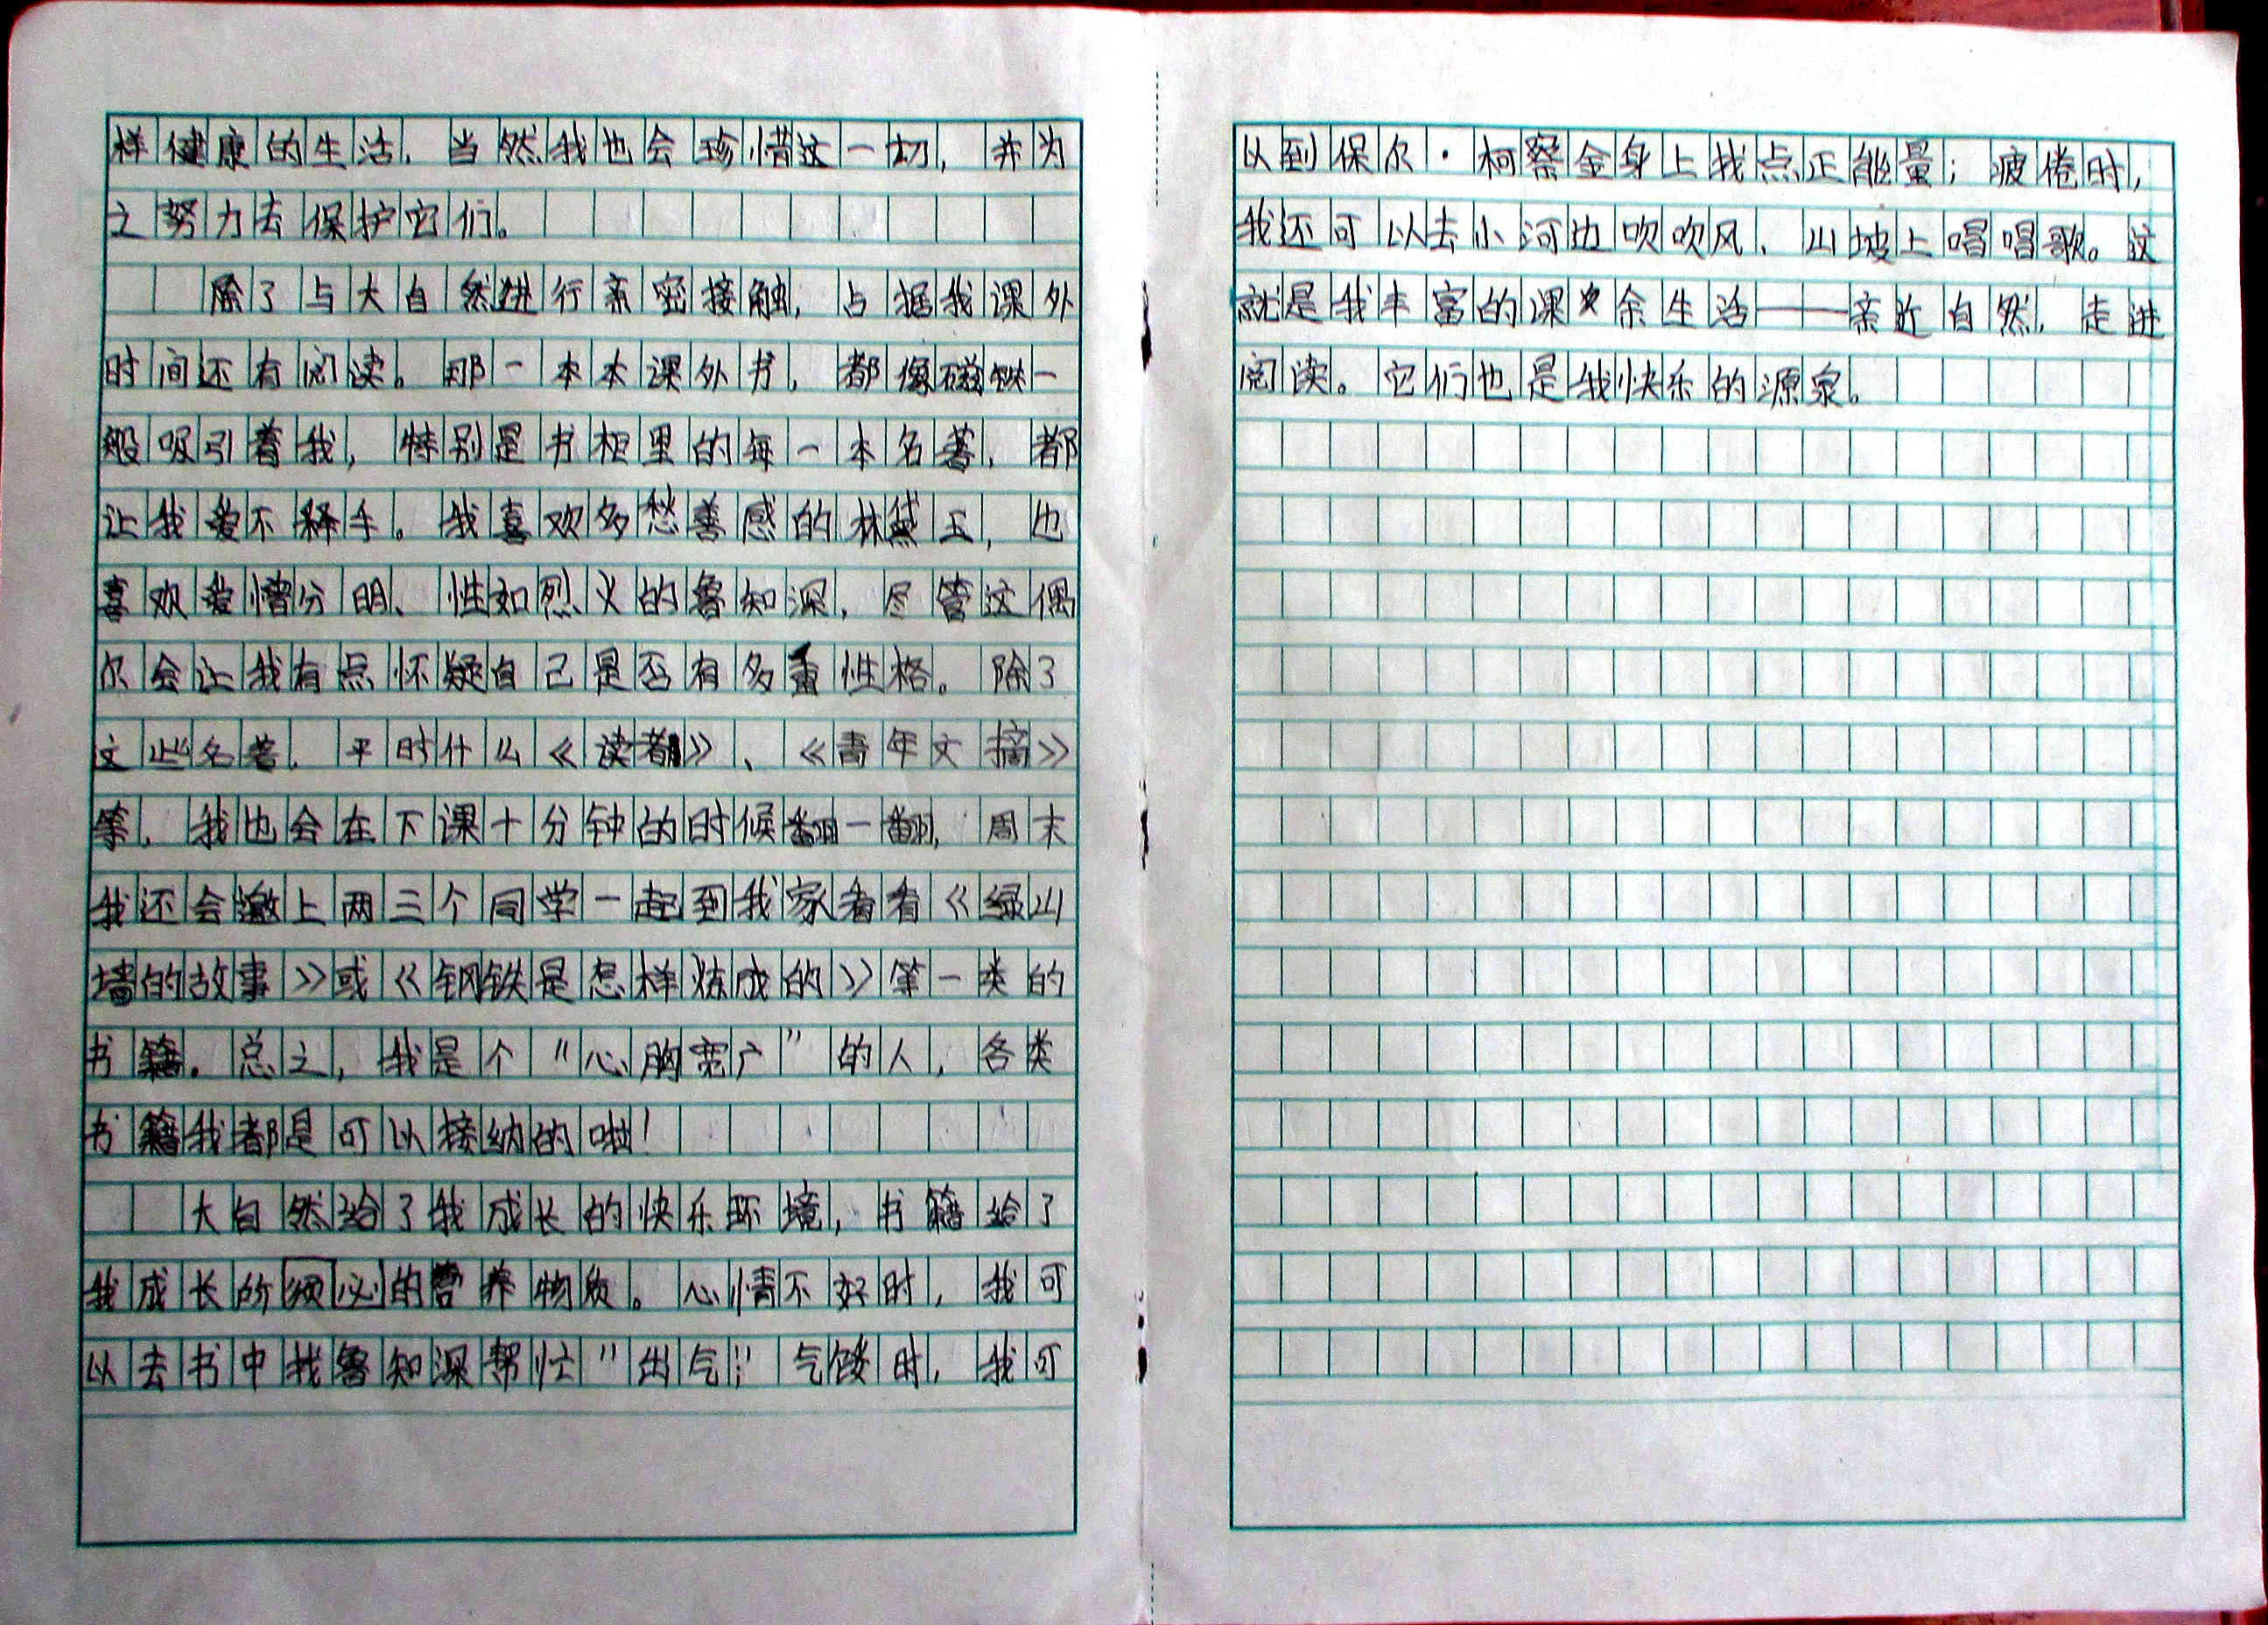 样健康的生活，当然我也会珍惜这一切，并为
之努力去保护它们。
除了与大自然进行亲密接触，占据我课外
时间还有阅读。那一本本课外书，都像磁铁一
般吸引着我，特别是书柜里的每一本名著，都
让我爱不释手。我喜欢多愁善感的林黛玉，也
喜欢爱憎分明、性如烈火的鲁知深，尽管这偶
尔会让我有点怀疑自己是否有多重性格。除了
这些名著，平时什么《读者》、《青年文摘》
等，我也会在下课十分钟的时候翻一翻，周末
我还会邀上两三个同学一起到我家看看《绿山
墙的故事》或《钢铁是怎样炼成的》等一类的
书籍。总之，我是个“心胸宽广”的人，各类
书籍我都是可以接纳的啦！
大自然给了我成长的快乐环境，书籍给了
我成长所须必的营养物质。心情不好时，我可
以去书中找鲁知深帮忙“出气”；气馁时，我可
以到保尔·柯察金身上找点正能量；疲倦时，
我还可以去小河边吹吹风、山坡上唱唱歌。这
就是我丰富的课余生活——亲近自然，走进
阅读。它们也是我快乐的源泉。